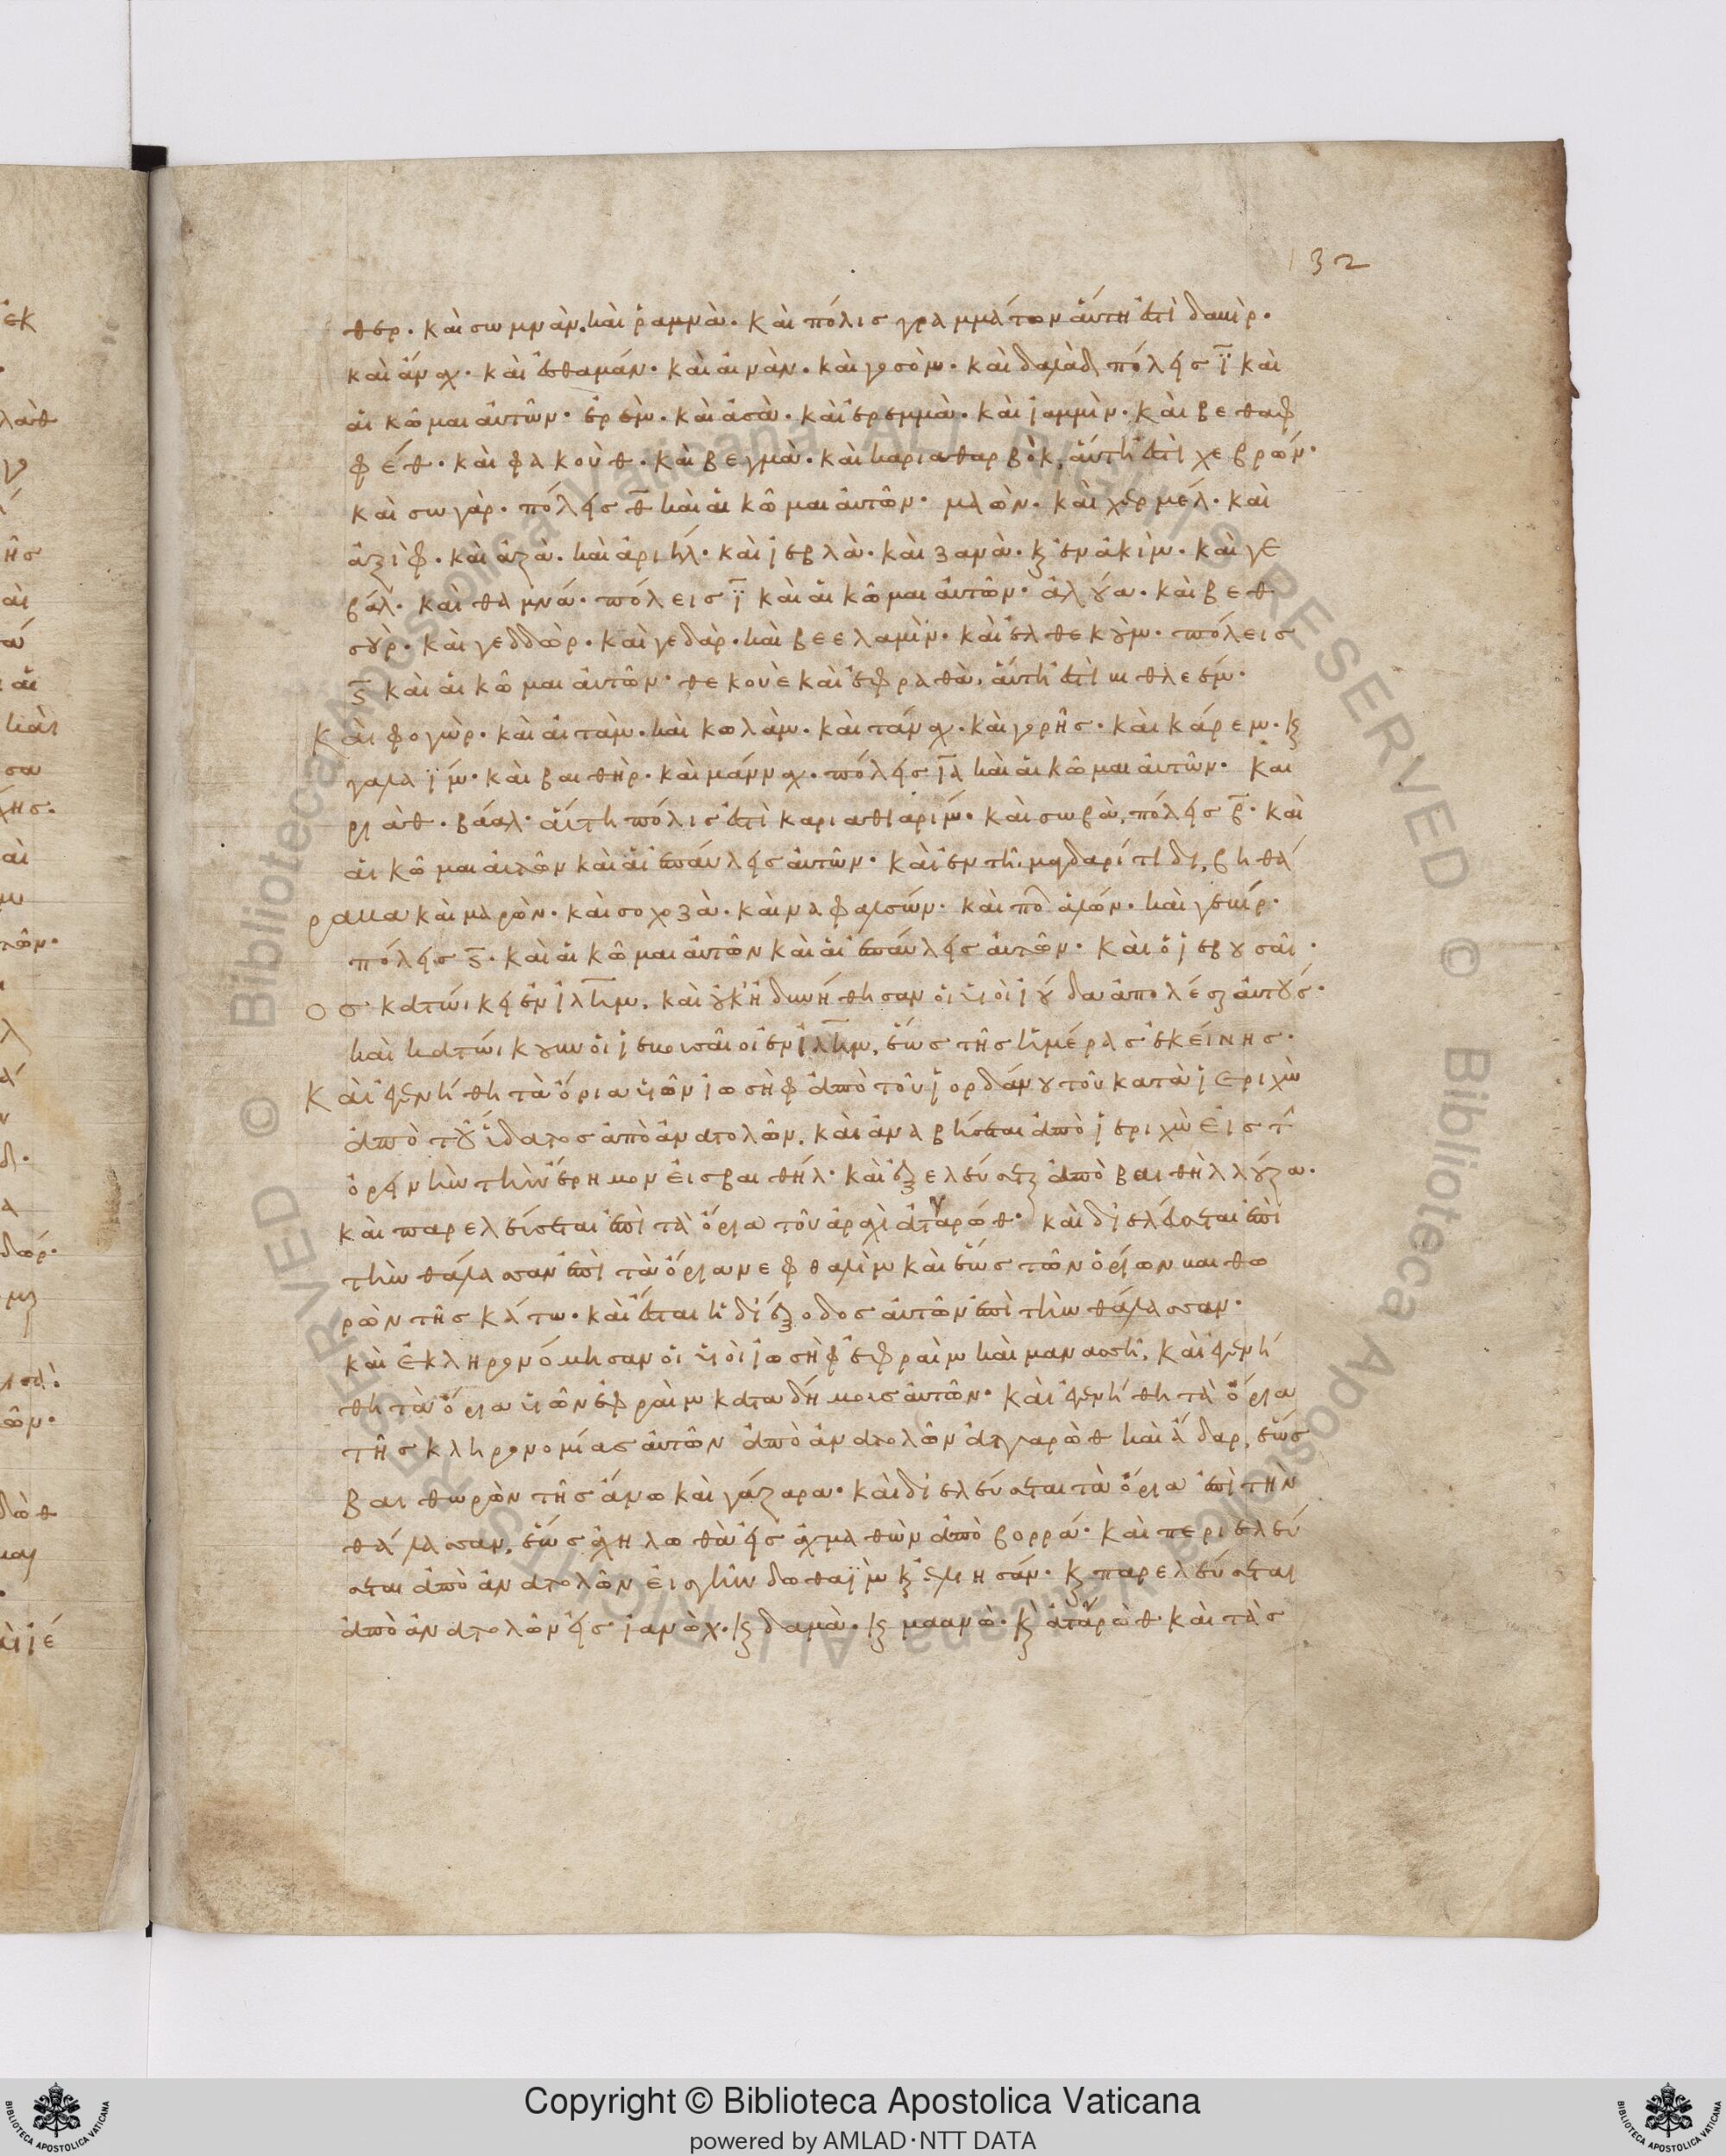 132
θερ. καὶ σωμνὰν. καὶ ῥαμνὰ. καὶ πόλις γραμμάτων ἅυτη ἐστὶ δαυὶρ.
καὶ ἄνωχ. καὶ ἐσθαμάν. καὶ ἀινὰν. καὶ γοσὸμ. καὶ δαλὰδ πόλεις ῑ καὶ
ἁι κῶμαι ἀυτῶν. ἐρὲμ. καὶ ἀσὰ. καὶ ἐρεμμὰ. καὶ ἰαμμὶν. καὶ βεθαφ
φέθ. καὶ φακοὺθ. καὶ βεγμὰ. καὶ καριαθαρβὸκ, ἅυτη ἐστὶ χεβρών.
καὶ σωγὰρ. πόλεις θ̄ καὶ ἁι κῶμαι ἀυτῶν. μαὼν. καὶ χερμέλ. καὶ
ἀζὶφ. καὶ ἀζὰ. καὶ ἀριήλ. καὶ ἰεβλὰ. καὶ ζανὰ. κ ἐνακὶμ. καὶ γε
βάλ. καὶ θαμνά. πόλεις ῑ καὶ ἁι κῶμαι ἀυτῶν. ἀλούα. καὶ βεθ
σούρ. καὶ γεδδὼρ. καὶ γεδὰρ. καὶ βεελαμὶν. καὶ ἐλθεκοὺμ. πόλεις
ϛ̄ καὶ ἁι κῶμαι ἀυτῶν. θεκουὲ καὶ ἐφραθὰ, ἅυτη ἐστὶ βηθλεέμ.
Καὶ φογὼρ. καὶ ἀιτὰμ. καὶ κωλὰμ. καὶ τάνωχ. καὶ γορῆς. καὶ κάρεμ. κ
γαλαΐμ. καὶ βαιθὴρ. καὶ μάνωχ. πόλεις ῑᾱ καὶ ἁι κῶμαι ἀυτῶν. και
ριὰθ. βάαλ. ἅυτη πόλις ἐστὶ καριαθιαρίμ. καὶ σωβὰ, πόλεις β̄. καὶ
ἁι κῶμαι ἀυτῶν καὶ ἁι ἐπαύλεις ἀυτῶν. καὶ ἐν τῆ μαδαρίτιδι, βηθά
ραμα καὶ μαρὼν. καὶ σοχοζὰ. καὶ ναφλασών. καὶ πολ ἁλῶν. καὶ γεκίρ.
πόλεις ϛ̄. καὶ ἁι κῶμαι ἀυτῶν καὶ ἁι ἐπαύλεις ἀυτῶν. καὶ ὁ ἰεβουσᾶι.
ος κατώικει ἐν ἰλημ, καὶ ὀυκ ἠδυνήθησαν ὁι υἱοὶ ἰούδα ἀπολέσαι ἀυτούς.
καὶ κατώικουν ὁι ἰεβουσᾶιοι ἐν ἰλημ, ἕως τῆς ἡμέρας ἐκείνης.
Καὶ ἐγενήθη τὰ ὅρια υἱῶν ἰωσὴφ ἀπὸ τοῦ ἰορδάνου τοῦ κατὰ ἰεριχὼ
ἀπὸ τοῦ ὕδατος ἀπὸ ἀνατολῶν. καὶ ἀναβήσεται ἀπὸ ἰεριχὼ ἐις τ
ὀρεινὴν τὴν ἔρημον ἐις βαιθήλ. καὶ ἐξελεύσεται ἀπὸ βαιθὴλ λούζα.
καὶ παρελεύσεται ἐπὶ τὰ ὅρια τοῦ ἀρχὶ ἀταρώθ. καὶ διελεύσεται ἐπὶ
τὴν θάλασσαν ἐπὶ τὰ ὅρια νεφθαλὶμ καὶ ἕως τῶν ὁρίων βαιθω
ρὼν τῆς κάτω. καὶ ἔσται ἡ διέξοδος ἀυτῶν ἐπὶ τὴν θάλασσαν.
καὶ ἐκληρονόμησαν ὁι υἱοὶ ἰωσὴφ ἐφραὶμ καὶ μανασσῆ. καὶ ἐγενή
θη τὰ ὅρια υἱῶν ἐφραὶμ κατα δήμους ἀυτῶν. καὶ ἐγενήθη τὰ ὅρια
τῆς κληρονομίας ἀυτῶν ἀπὸ ἀνατολῶν ἀταρὼθ καὶ ἄδαρ, ἕως
βαιθωρὼν τῆς ἄνω καὶ γάζαρα. καὶ διελεύσεται τὰ ὅρια ἐπὶ τὴν
θάλασσαν, ἕως ἀχηλωθὰ εἰς ἀχμαθὼν ἀπὸ βορρᾶ. καὶ περιελεύ
σεται ἀπὸ ἀνατολῶν ἐις γῆν δωθαῒμ κ σελλησάν. κ παρελεύσεται
ἀπὸ ἀνατολῶν εἰς ἰανὼχ. κ δαμὰ. κ μαανὼ. κ ἀταρὼθ καὶ τὰς
Copyright © Biblioteca Apostolica Vaticana
powered by AMLAD·NTT DATA